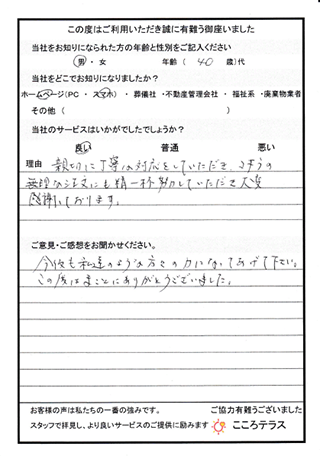 この度はご利用いただき誠に有難う御座いました
当社をお知りになられた方の年齢と性別をご記入ください
男 ・ 女 年齢 ( 40 歳)代
当社をどこでお知りになりましたか?
ホームページ(PC ・ スマホ) ・ 葬儀社 ・不動産管理会社 ・ 福祉系 ・廃棄物業者
その他 ( )
当社のサービスはいかがでしたでしょうか?
良い 普通 悪い
理由 親切に丁寧な対応をしていただき、こちらの
無理な注文にも精一杯努力していただき大変
感謝しております。
ご意見・ご感想をお聞かせください。
今後も私達のような方々の力になってあげて下さい。
この度はまことにありがとうございました。
お客様の声は私たちの一番の強みです。 ご協力有難うございました
スタッフで拝見し、より良いサービスのご提供に励みます こころテラス